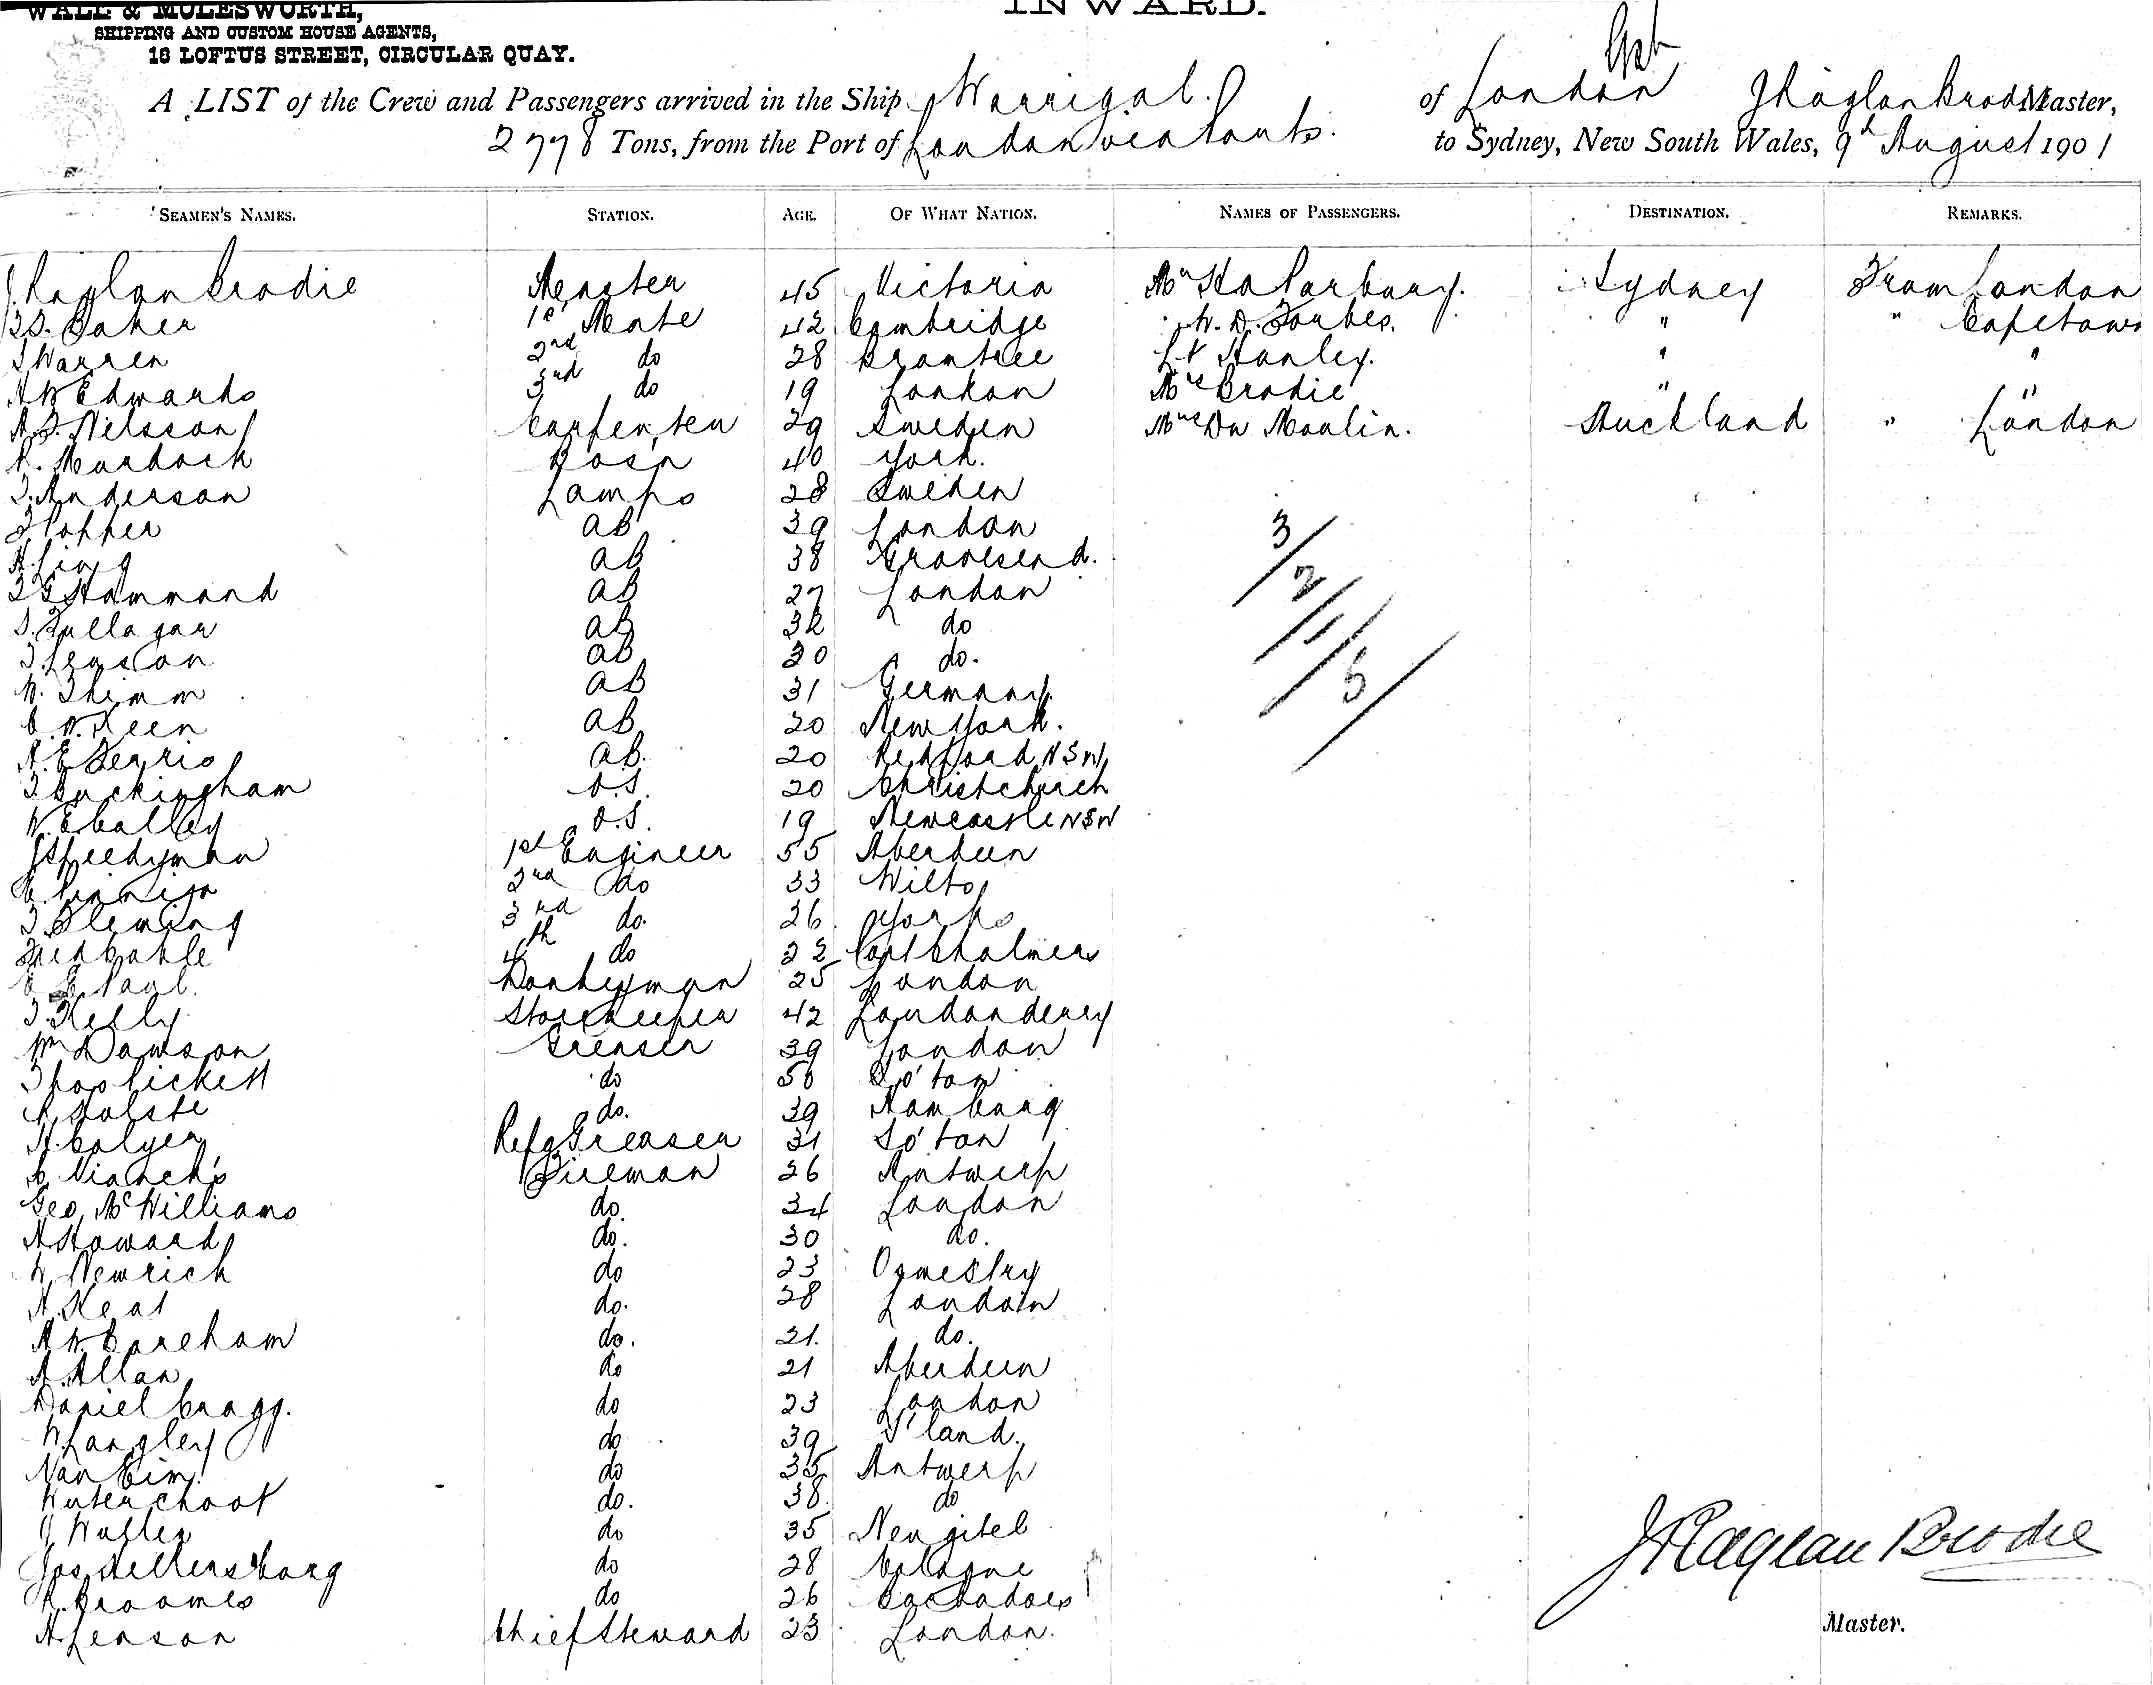 WALL & MOLESWORTH,
SHIPPING AND CUSTOM HOUSE AGENTS,
18 LOFTUS STREET, CIRCULAR QUAY.
INWARD.
A LIST of the Crew and Passengers arrived in the Ship Warrigal. of London J Raglan Brodie Master,
2778 Tons, from the Port of London via Ports. to Sydney, New South Wales, 9th August 1901
SEAMEN'S NAMES. STATION. AGE. OF WHAT NATION. NAMES OF PASSENGERS. DESTINATION. REMARKS.
J. Raglan Brodie Master 45 Victoria Mr Parbury. Sydney From London
Baker 1st Mate 42 Cambridge Forbes. " " Capetown
Warren 2nd do 28 Braintree Stanley. " "
Edwards 3rd do 19 London Mrs Brodie " "
Nilsson Carpenter 29 Sweden Du Moulin. Auckland " London
Murdoch Bosn 40 York.
Anderson Lamps 28 Sweden
Popper AB 39 London
King AB 38 Gravesend.
Hammond AB 27 London
Fullagar AB 32 do
AB 30 do.
W. Thimm AB 31 Germany.
C. W. Keen AB 20 New York.
AB. 20 Redford NSW
Buckingham O.S. 20 Christchurch
O.S. 19 Newcastle NSW
J Speedyman 1st Engineer 55 Aberdeen
2nd do 33 Wilts
Fleming 3rd do. 26 Yorks
4th do 22 Port Chalmers
Paul. Donkeyman 25 London
Kelly Storekeeper 42 Londonderry
Wm Dawson Greaser 39 London
Thos Pickett do 50 So'ton
Holste do. 39 Hamburg
Colyer Refg Greaser 31 So'ton
Fireman 26 Antwerp
Geo. McWilliams do. 34 London
A Howard do. 30 do.
Newrich do 23 Oswestry
Keat do. 28 London
A W Careham do. 21. do.
A. Allan do 21 Aberdeen
Daniel Cragg. do 23 London
W Langley do 39 S'land.
Van do 35 Antwerp
do. 38. do
J Walter do 35
Jos do 28 Cologne
Broomes do 26 Barbadoes
A. Lenson Chief Steward 23 London.
3/2/1/5/
J Raglan Brodie
Master.